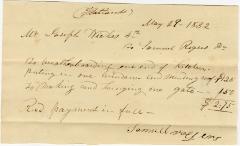 May 28, 1862
Mr. Joseph Weekes
To Samuel Rogers Dr
To weatherboarding one end of kitchen
Puting in one window and $1.20
To Making and hanging one gate — 1.52
$2.75
Recd payment in full —
Samuel Rogers